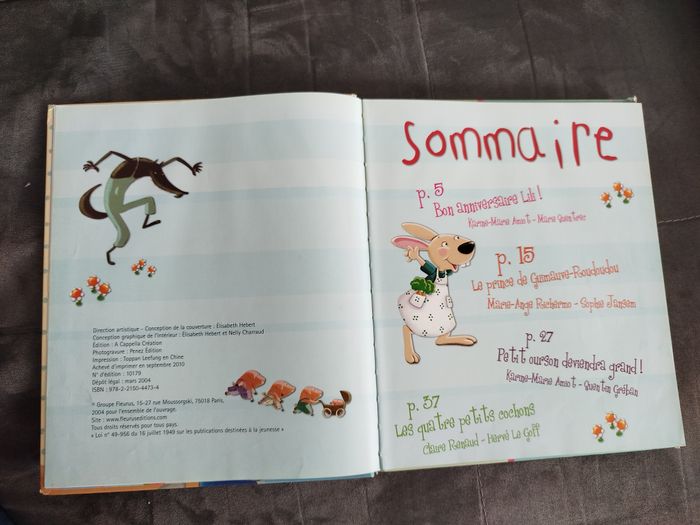 Direction artistique - Conception de la couverture : Élisabeth Hebert
Conception graphique de l'intérieur : Élisabeth Hebert et Nelly Charraud
Édition : A Cappella Création
Photogravure : Penez Édition
Impression : Toppan Leefung en Chine
Achevé d'imprimer en septembre 2010
N° d'édition : 10179
Dépôt légal : mars 2004
ISBN : 978-2-2150-4473-4
© Groupe Fleurus, 15-27 rue Moussorgski, 75018 Paris,
2004 pour l'ensemble de l'ouvrage.
Site : www.fleuruseditions.com
Tous droits réservés pour tous pays.
« Loi n° 49-956 du 16 juillet 1949 sur les publications destinées à la jeunesse »
Sommaire
p. 5
Bon anniversaire Lili !
Karine-Marie Amiot - Marie Quentrec
p. 15
Le prince de Guimauve-Roudoudou
Marie-Ange Richermo - Sophie Jansem
p. 27
Petit ourson deviendra grand !
Karine-Marie Amiot - Quentin Gréban
p. 37
Les quatre petits cochons
Claire Renaud - Hervé Le Goff